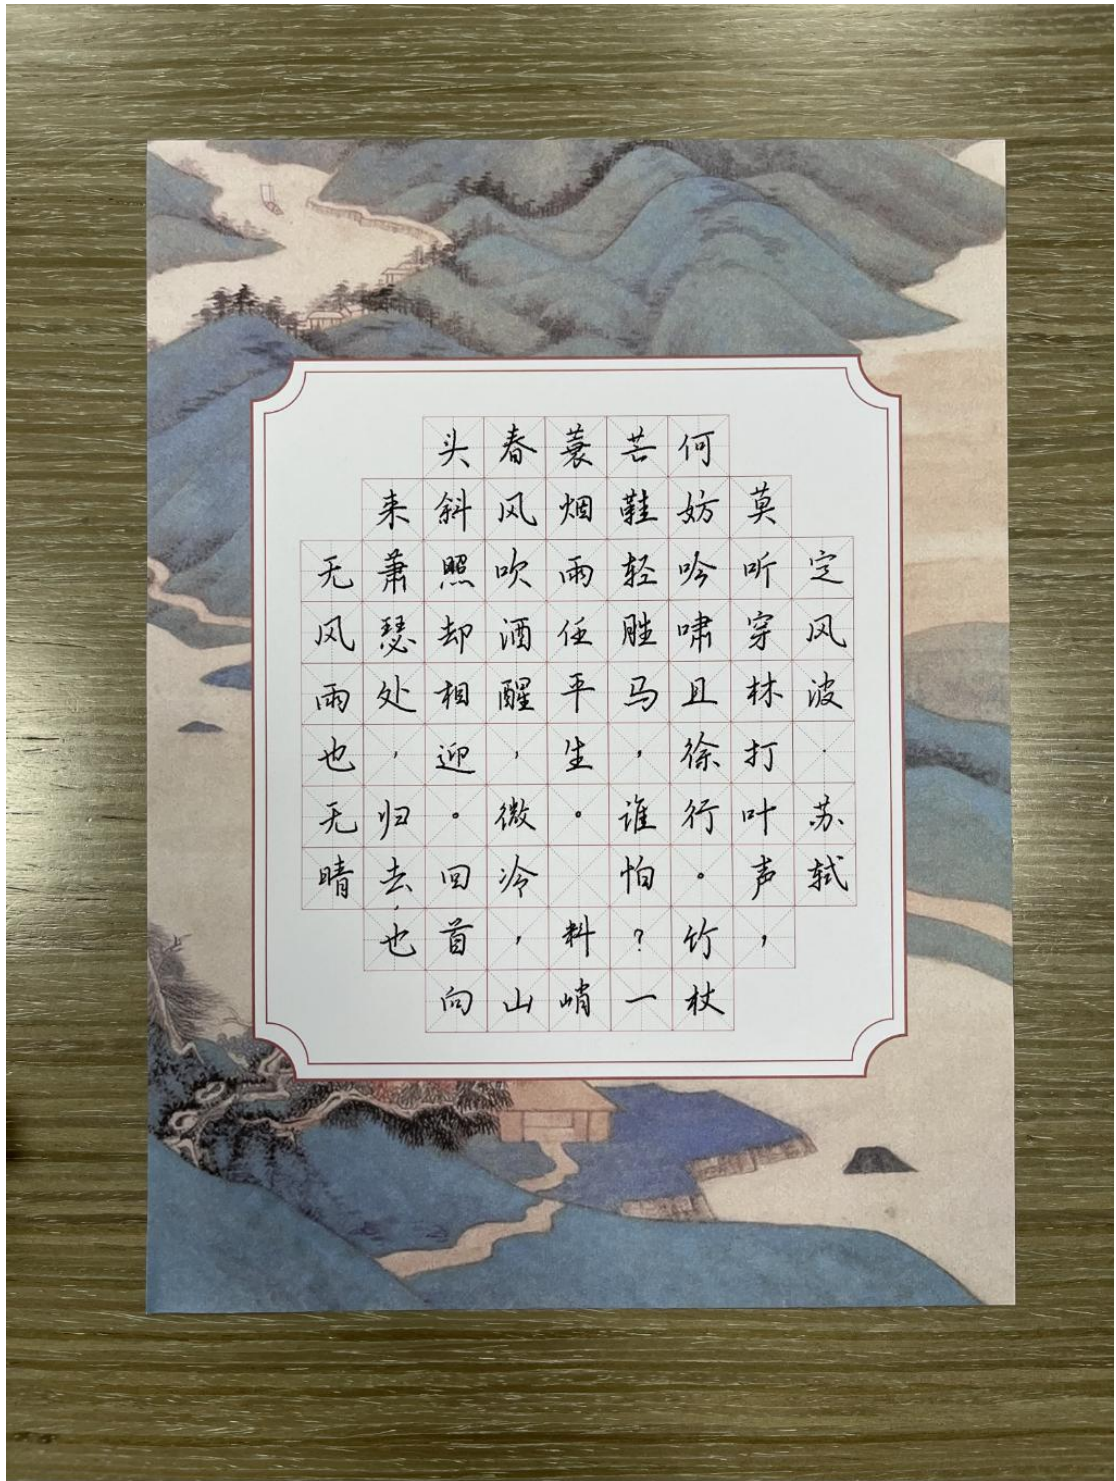 定风波·苏轼
莫听穿林打叶声，
何妨吟啸且徐行。竹杖
芒鞋轻胜马，谁怕？一
蓑烟雨任平生。 料峭
春风吹酒醒，微冷，山
头斜照却相迎。回首向
来萧瑟处，归去，也
无风雨也无晴